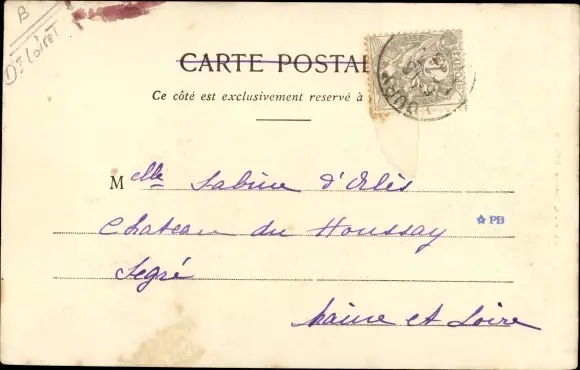 B
Dt Loiret
CARTE POSTAL
Ce côté est exclusivement reservé à
Melle Sabine d'Orlès
Chateau du Houssay
PB
Segré
Maine et Loire